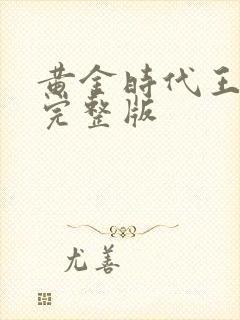 黄金時代王
完整版
尤善